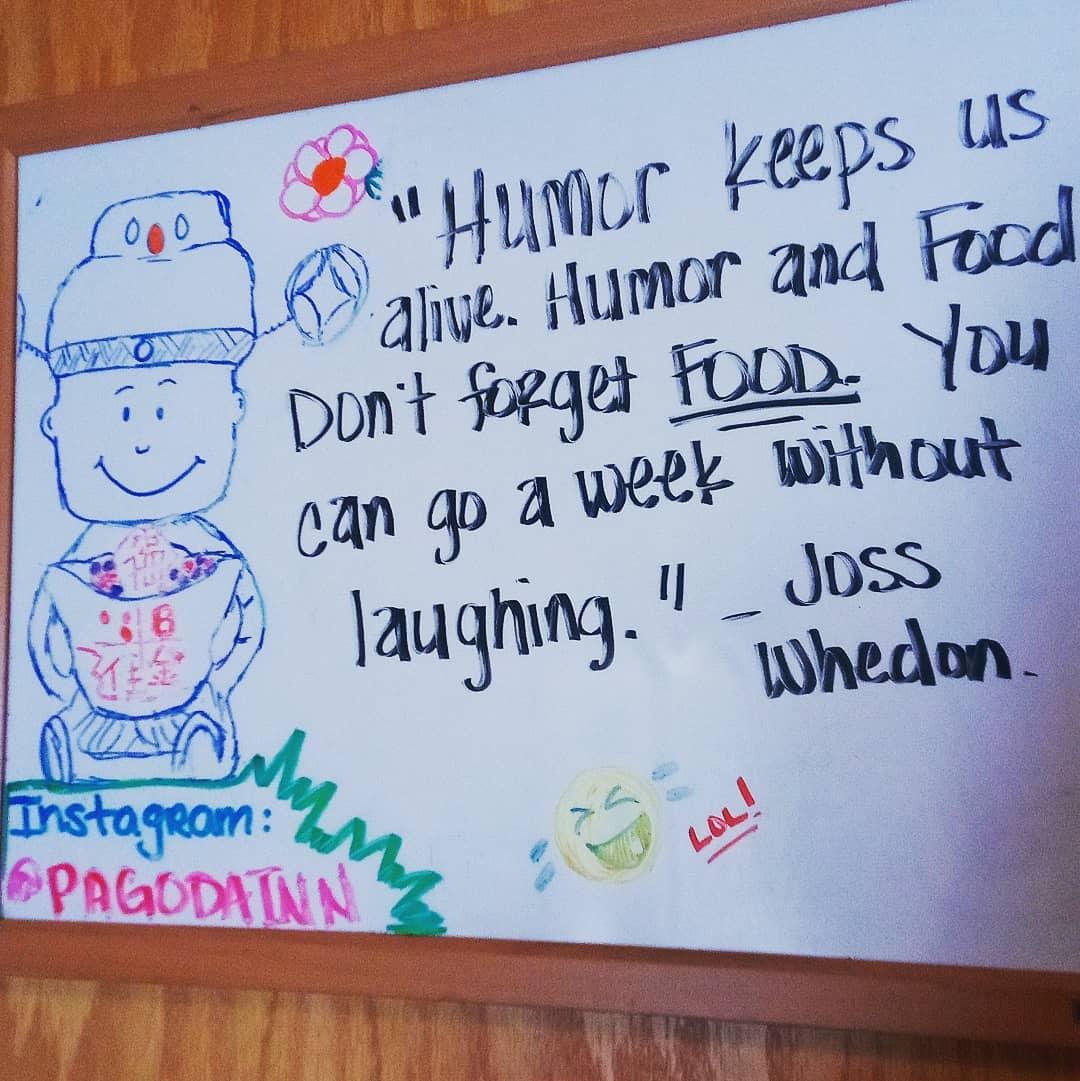 "Humor keeps us
alive. Humor and Food
Don't forget FOOD. You
can go a week without
laughing." _ Joss
Whedon.
LOL!
Instagram:
@PAGODAINN